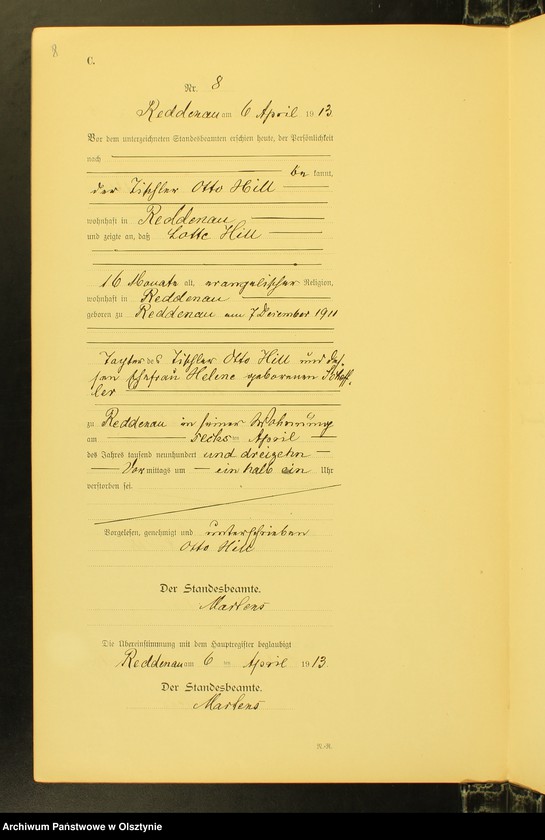 8
C.
Nr. 8
Reddenau am 6 April 1913.
Vor dem unterzeichneten Standesbeamten erschien heute, der Persönlichkeit
nach
be kannt,
der Tischler Otto Hill
wohnhaft in Reddenau
und zeigte an, daß Lotte Hill
16 Monate alt, evangelischer Religion,
wohnhaft in Reddenau
geboren zu Reddenau am 7 Dezember 1911
Tochter des Tischler Otto Hill und des-
sen Ehefrau Helene geborenen
ler
zu Reddenau in seiner Wohnung
am sechs ten April
des Jahres tausend neunhundert und dreizehn
Vor mittags um ein halb ein Uhr
verstorben sei.
Vorgelesen, genehmigt und unterschrieben
Otto Hill
Der Standesbeamte.
Martens
Die Übereinstimmung mit dem Hauptregister beglaubigt
Reddenau am 6 ten April 1913.
Der Standesbeamte.
Martens
Archiwum Państwowe w Olsztynie